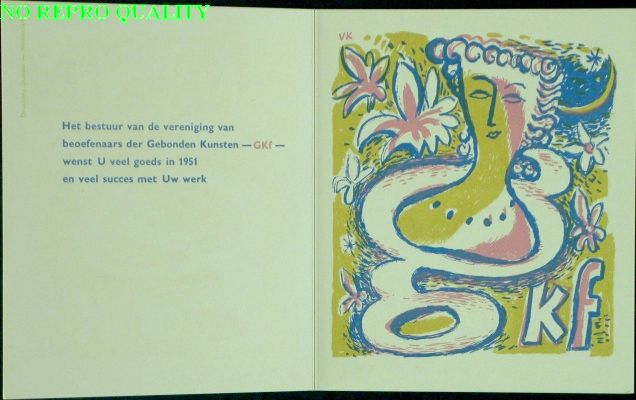 NO REPRO QUALITY
Het bestuur van de vereniging van
beoefenaars der Gebonden Kunsten — GKf —
wenst U veel goeds in 1951
en veel succes met Uw werk
VK
gkf